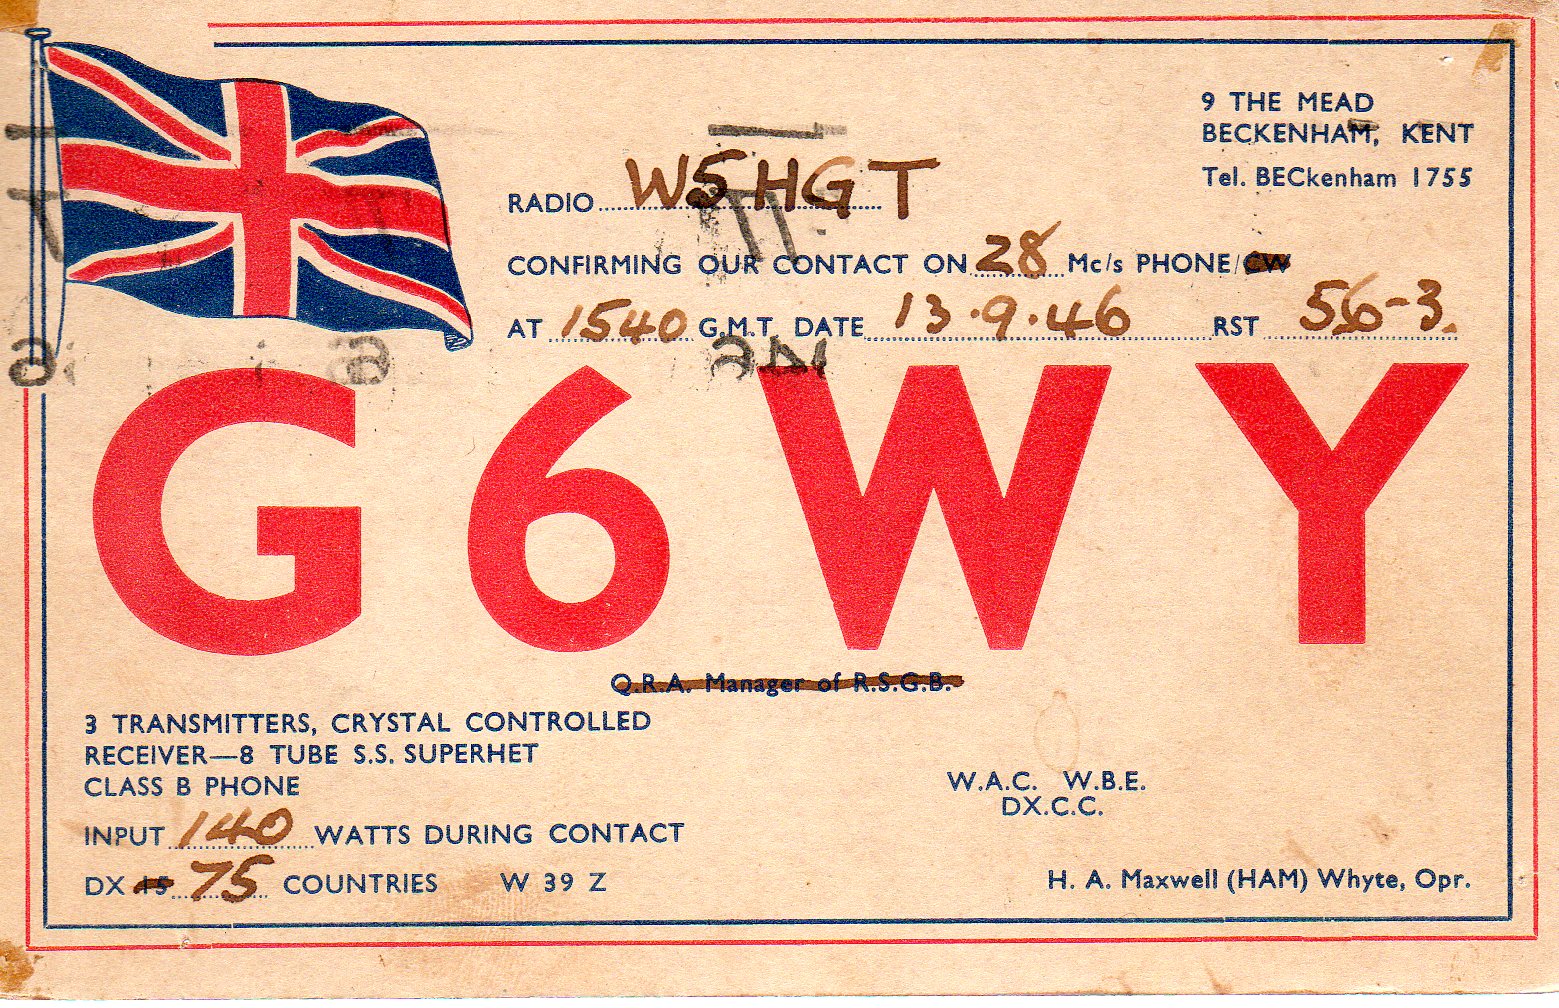 9 THE MEAD
BECKENHAM, KENT
Tel. BECkenham 1755
RADIO W5HGT
CONFIRMING OUR CONTACT ON 28 Mc/s PHONE/CW
AT 1540 G.M.T. DATE 13.9.46 RST 56-3.
G6WY
Q.R.A. Manager of R.S.G.B.
3 TRANSMITTERS, CRYSTAL CONTROLLED
RECEIVER—8 TUBE S.S. SUPERHET
CLASS B PHONE
INPUT 140 WATTS DURING CONTACT
DX 15 75 COUNTRIES W 39 Z
W.A.C. W.B.E.
DX.C.C.
H. A. Maxwell (HAM) Whyte, Opr.